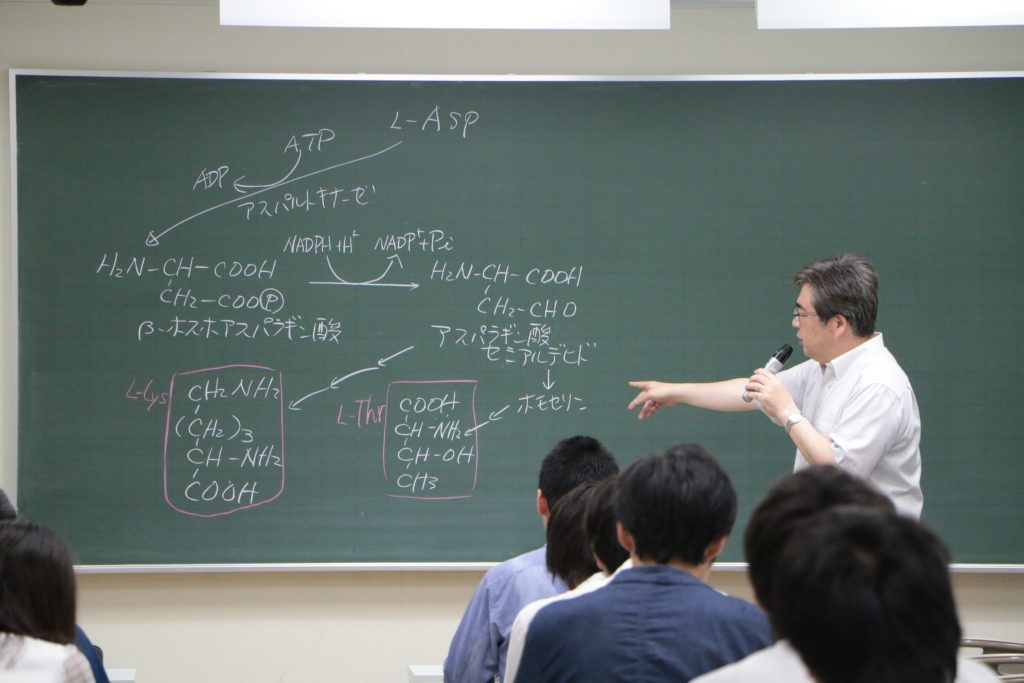 L-Asp
ATP
ADP
アスパルトキナーゼ
NADPH+H⁺ NADP⁺+Pi
H₂N-CH-COOH
CH₂-COOⓅ
β-ホスホアスパラギン酸
H₂N-CH-COOH
CH₂-CHO
アスパラギン酸
セミアルデヒド
ホモセリン
L-Lys
CH₂NH₂
(CH₂)₃
CH-NH₂
COOH
L-Thr
COOH
CH-NH₂
CH-OH
CH₃